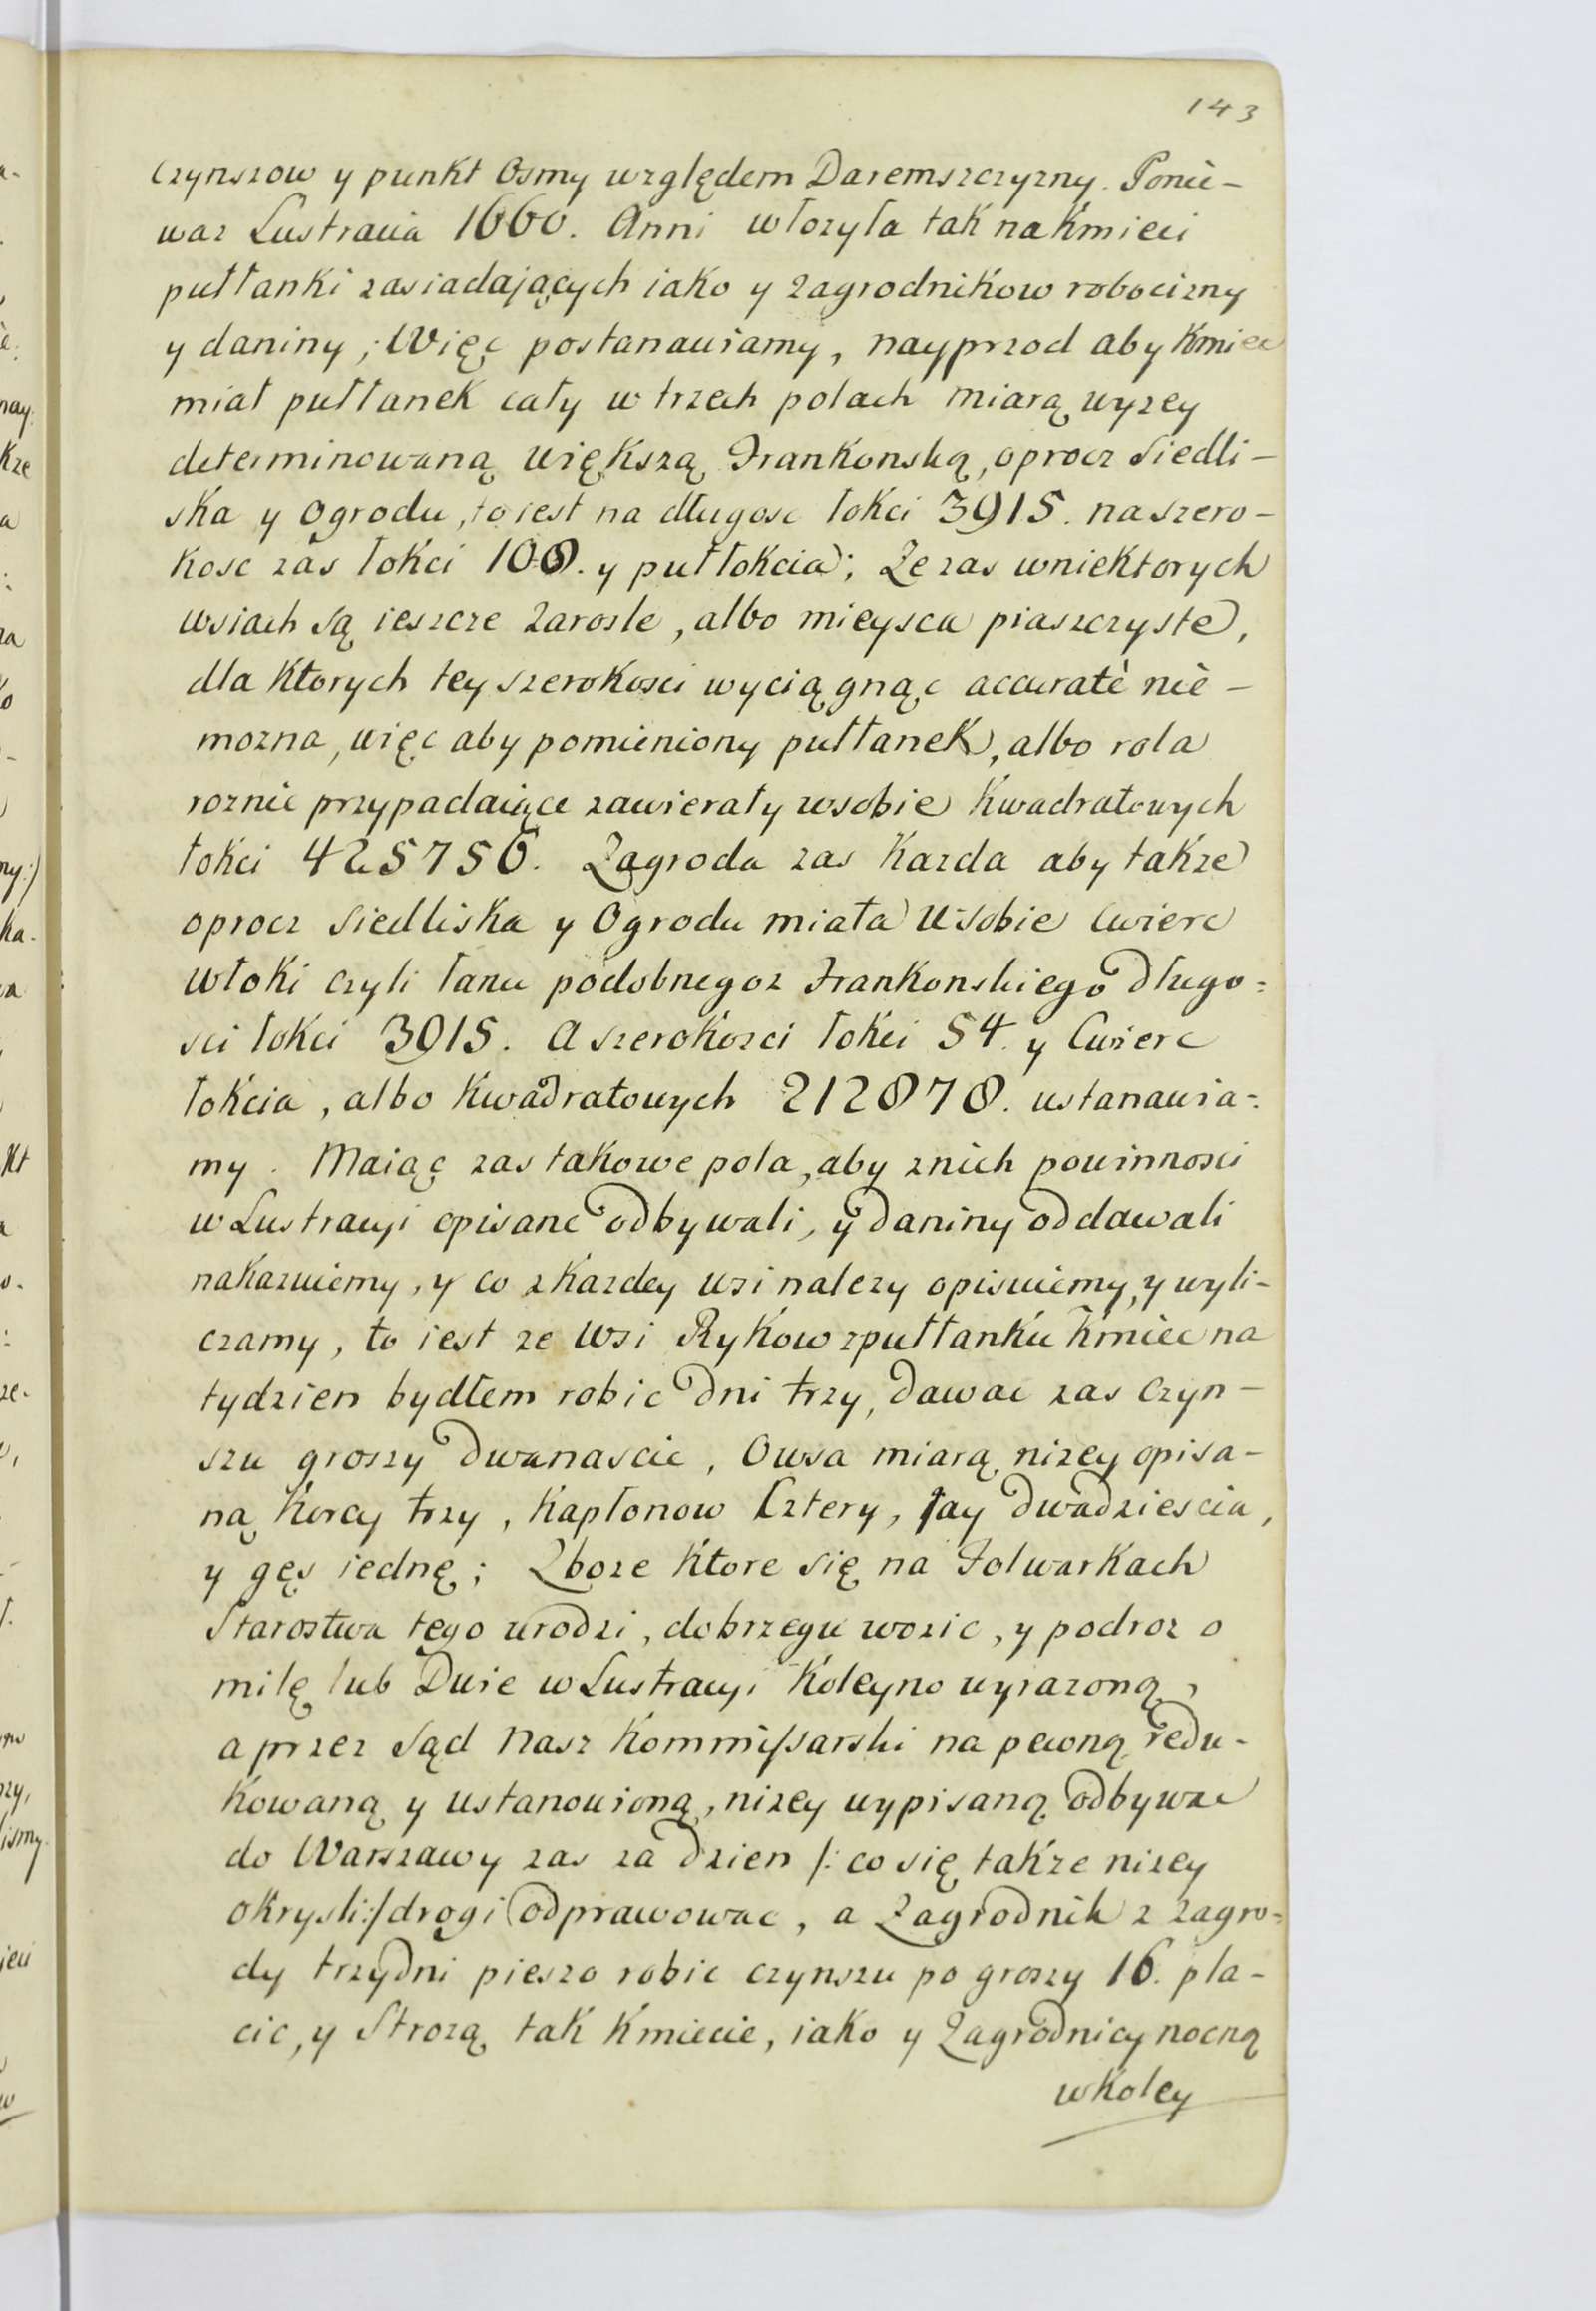 143
Czynszow y punkt Osmy względem Daremszczyzny. Ponie-
waz Lustracia 1660. Anni włozyła tak na Kmieci
pułłanki zasiadających iako y zagrodnikow robocizny
y daniny; Więc postanawiamy, nayprzod aby Kmiec
miał pułłanek cały w trzech polach miarą wyzey
determinowaną większą Frankonską, oprocz Siedli-
ska y Ogrodu, to iest na długosc łokci 3915. na szero-
kosc zas łokci 108. y puł łokcia; Ze zas w niektorych
wsiach są ieszcze Zarosle, albo mieysca piaszczyste,
dla Ktorych tey szerokosci wyciągnąc accuratè nie-
mozna, więc aby pomieniony pułłanek, albo rola
roznie przypadaiące zawierały w sobie Kwadratowych
łokci 425756. Zagroda zas Kazda aby takze
oprocz Siedliska y Ogrodu miała w sobie Cwierc
włoki czyli łanu podobnegoz Frankonskiego długo=
sci łokci 3915. a szerokosci łokci 54. y Cwierc
łokcia, albo Kwadratowych 212878. ustanawia=
my. Maiąc zas takowe pola, aby z nich powinnosci
w Lustracyi opisane odbywali, y daniny oddawali
nakazuiemy, y co z Kazdey wsi nalezy opisuiemy, y wyli-
czamy, to iest ze Wsi Rykow z pułłanku Kmiec na
tydzien bydłem robic dni trzy, dawac zas czyn-
szu groszy dwanascie, Owsa miarą nizey opisa-
ną Korcy trzy, Kapłonow Cztery, Jay dwadziescia,
y gęs iednę; Zboze Ktore się na Folwarkach
Starostwa tego urodzi, do brzegu wozic, y podroz o
milę lub Dwie w Lustracyi Koleyno wyrazoną,
a przez Sąd Nasz Kommissarski na pewną redu-
kowaną y ustanowioną, nizey wypisaną odbywac
do Warszawy zas za dzien /: co się takze nizey
okrysli:/ drogi odprawowac, a Zagrodnik z zagro=
dy trzy dni pieszo robic czynszu po groszy 16. pła-
cic, y Strozą tak Kmiecie, iako y Zagrodnicy nocną
w Koley